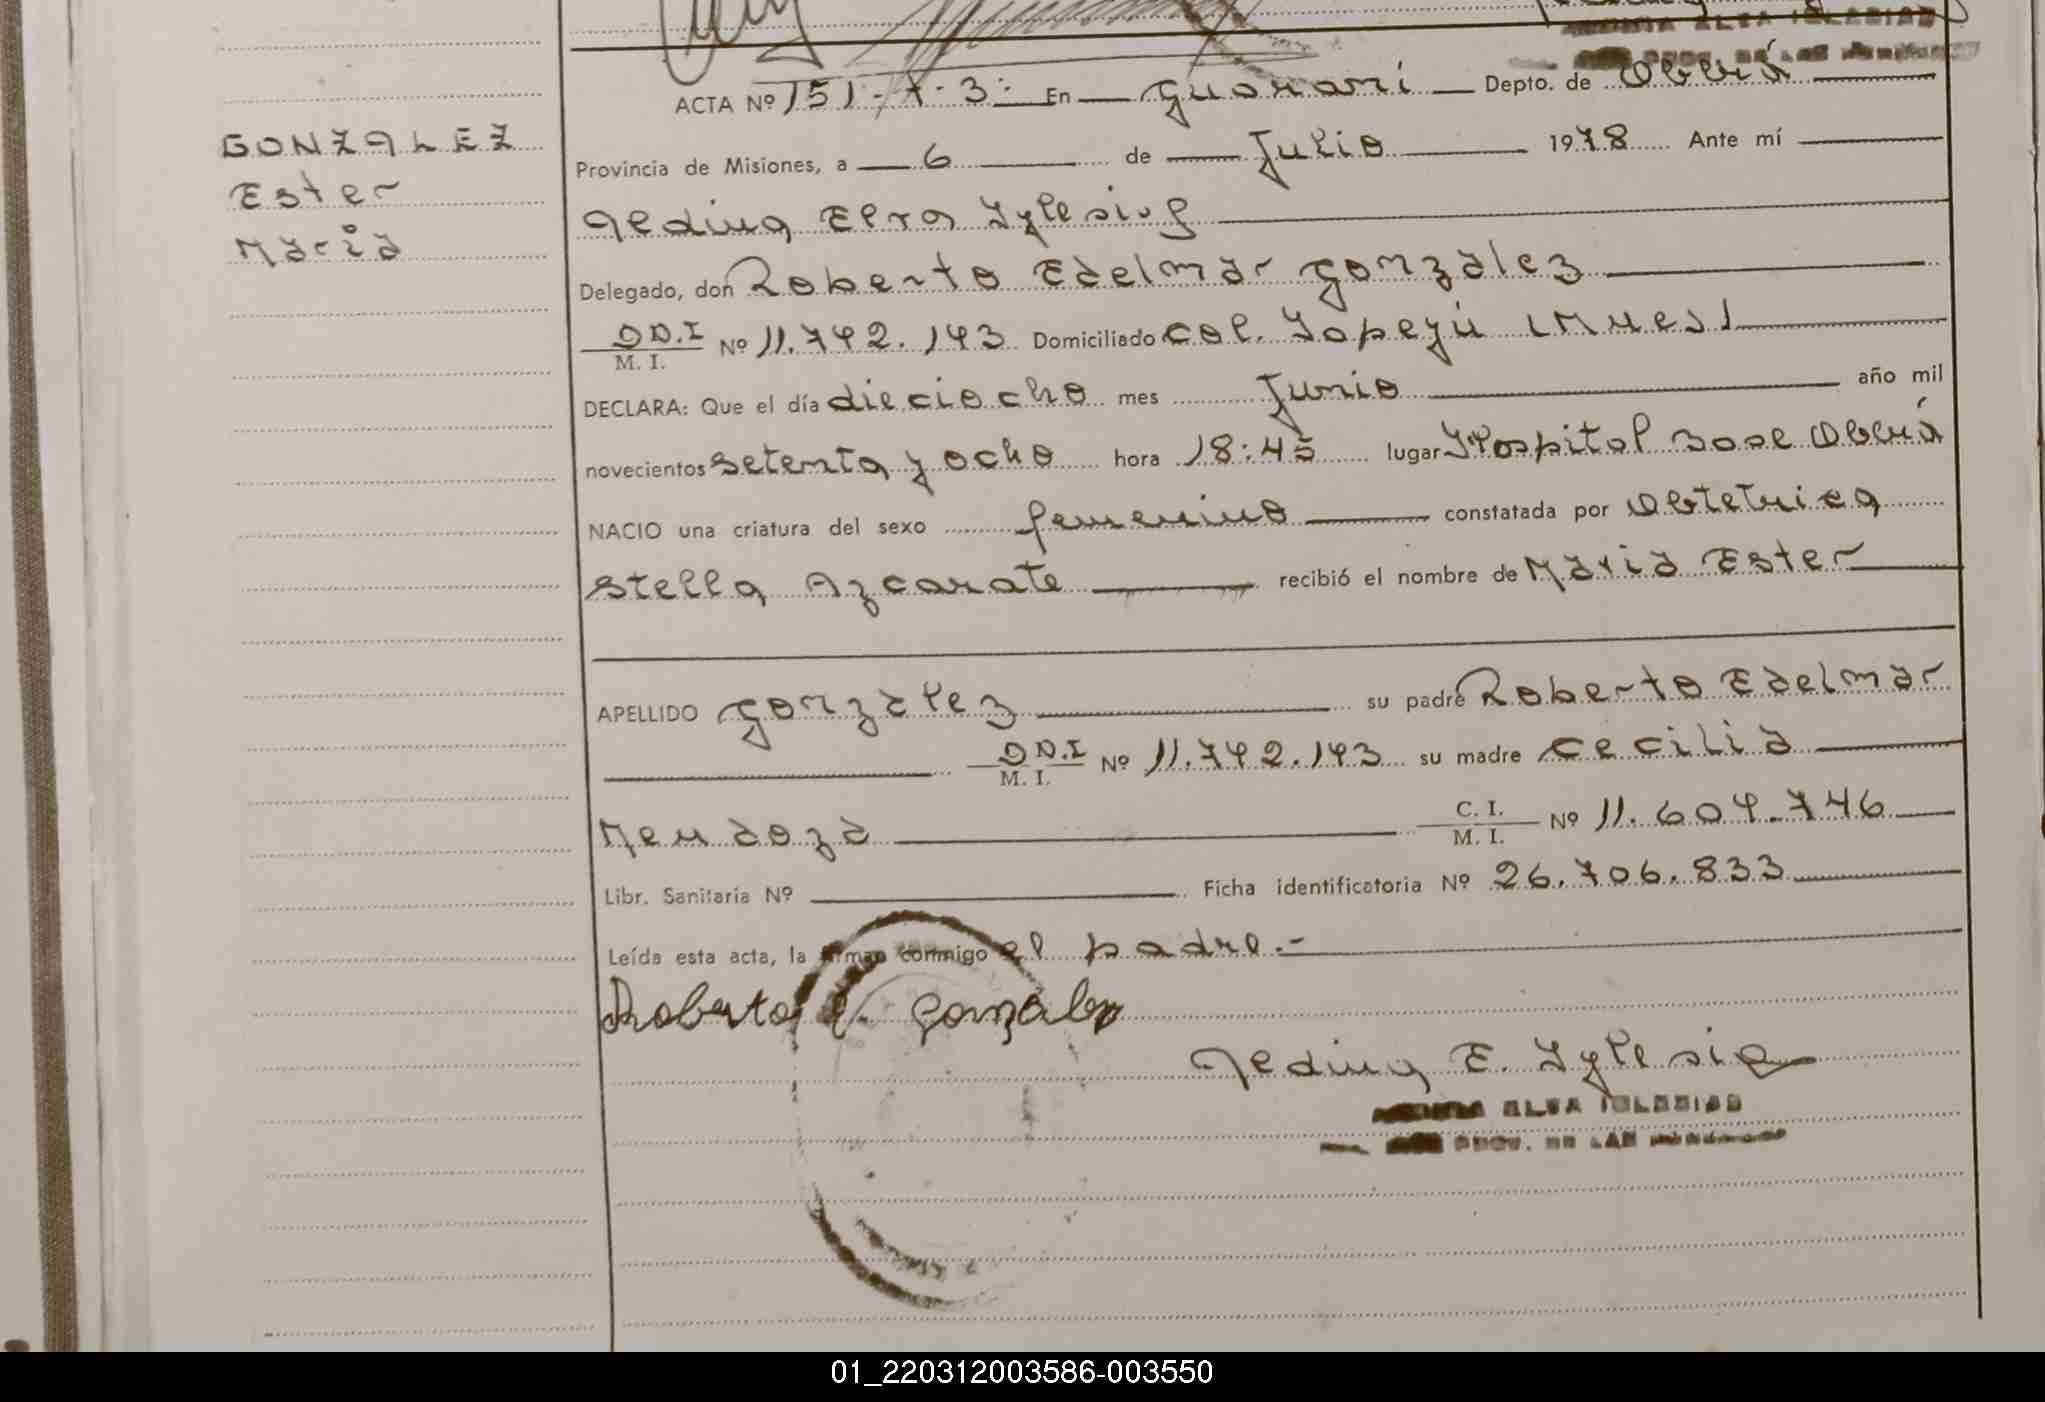 ACTA Nº 151-T-3: En Guarani Depto. de Oberá
Provincia de Misiones, a 6 de Julio 1978 Ante mí
GONZALEZ
Ester
Maria
Delegado, don Roberto Edelmar Gonzalez
DNI
M. I. Nº 11.742.143 Domiciliado Col. Yapeyú
DECLARA: Que el día dieciocho mes Junio año mil
novecientos setenta y ocho hora 18:45 lugar Hospital Base Oberá
NACIO una criatura del sexo femenino constatada por Obtetrica
Stella Azcarate recibió el nombre de Maria Ester
APELLIDO Gonzalez su padre Roberto Edelmar
DNI
M. I. Nº 11.742.143 su madre Cecilia
Mendoza C. I.
M. I. Nº 11.604.746
Libr. Sanitaria Nº Ficha identificatoria Nº 26.706.833
Leída esta acta, la firman conmigo el padre.-
Roberto E. Gonzalez
E. Iglesia
ELSA IGLESIAS
PROV. DE LAS
01_220312003586-003550